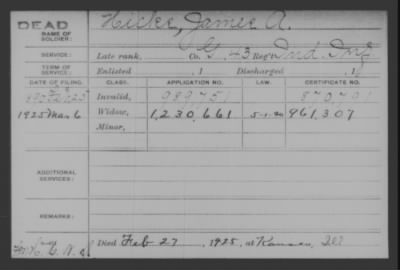 DEAD
NAME OF SOLDIER:
Hicks, James A.
SERVICE:
Late rank, Co. G, 43 Reg't Ind. Inf.
TERM OF SERVICE:
Enlisted , 1 Discharged , 1
DATE OF FILING. CLASS. APPLICATION NO. LAW. CERTIFICATE NO.
Invalid,
1925 Mar 6 Widow, 1,230,661 5-1-20 961,307
Minor,
ADDITIONAL SERVICES:
REMARKS:
Died Feb 27, 1925, at Kansas, Ill